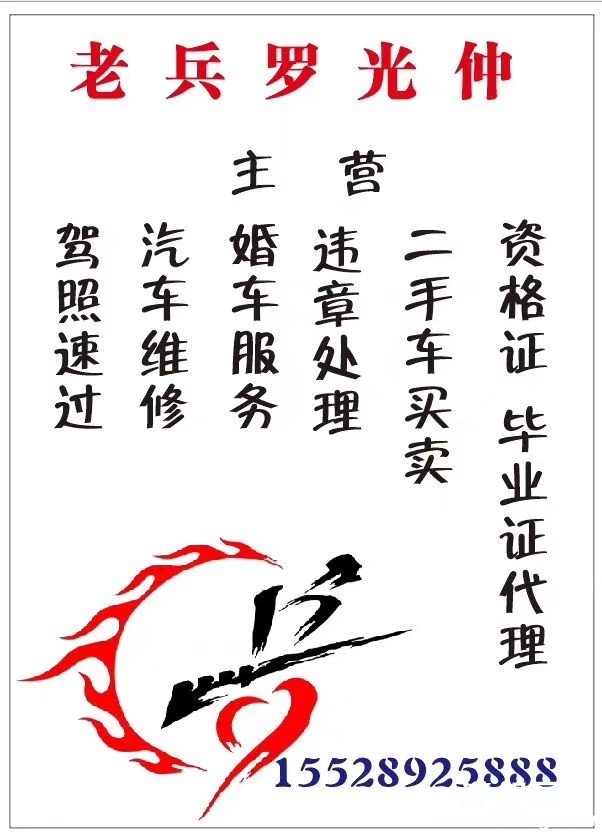 老兵罗光仲
主营
资格证 毕业证代理
二手车买卖
违章处理
婚车服务
汽车维修
驾照速过
兵
15528925888